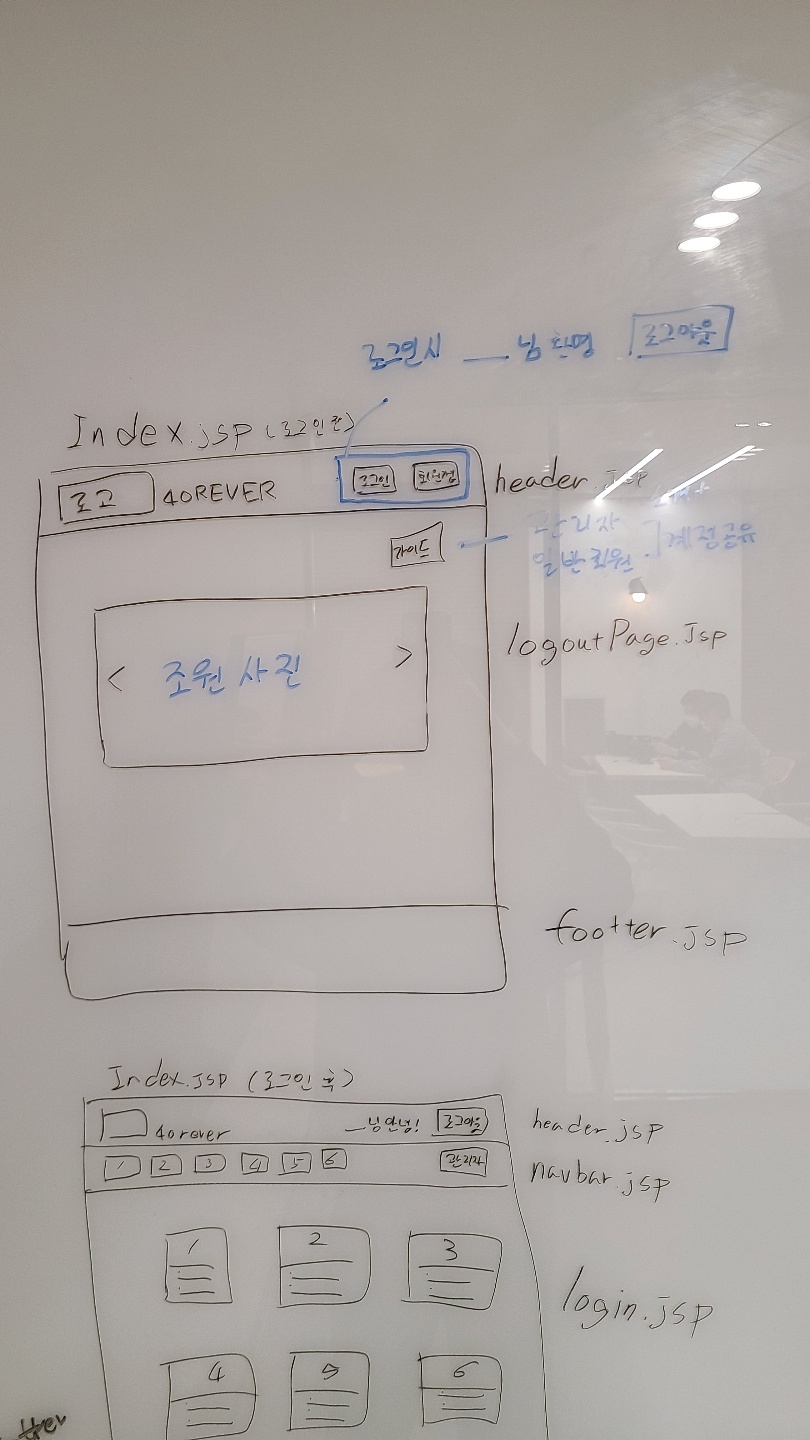 로그인시 ___ 님 환영 로그아웃
Index.jsp (로그인 전)
로고 40REVER 로그인 회원정
header.jsp
가이드
관리자
일반회원 ] 계정공유
logoutPage.Jsp
< 조원 사진 >
footter.jsp
Index.jsp (로그인 후)
4orever __님안녕! 로그아웃
header.jsp
1 2 3 4 5 6 관리자
navbar.jsp
1 2 3
login.jsp
4 5 6